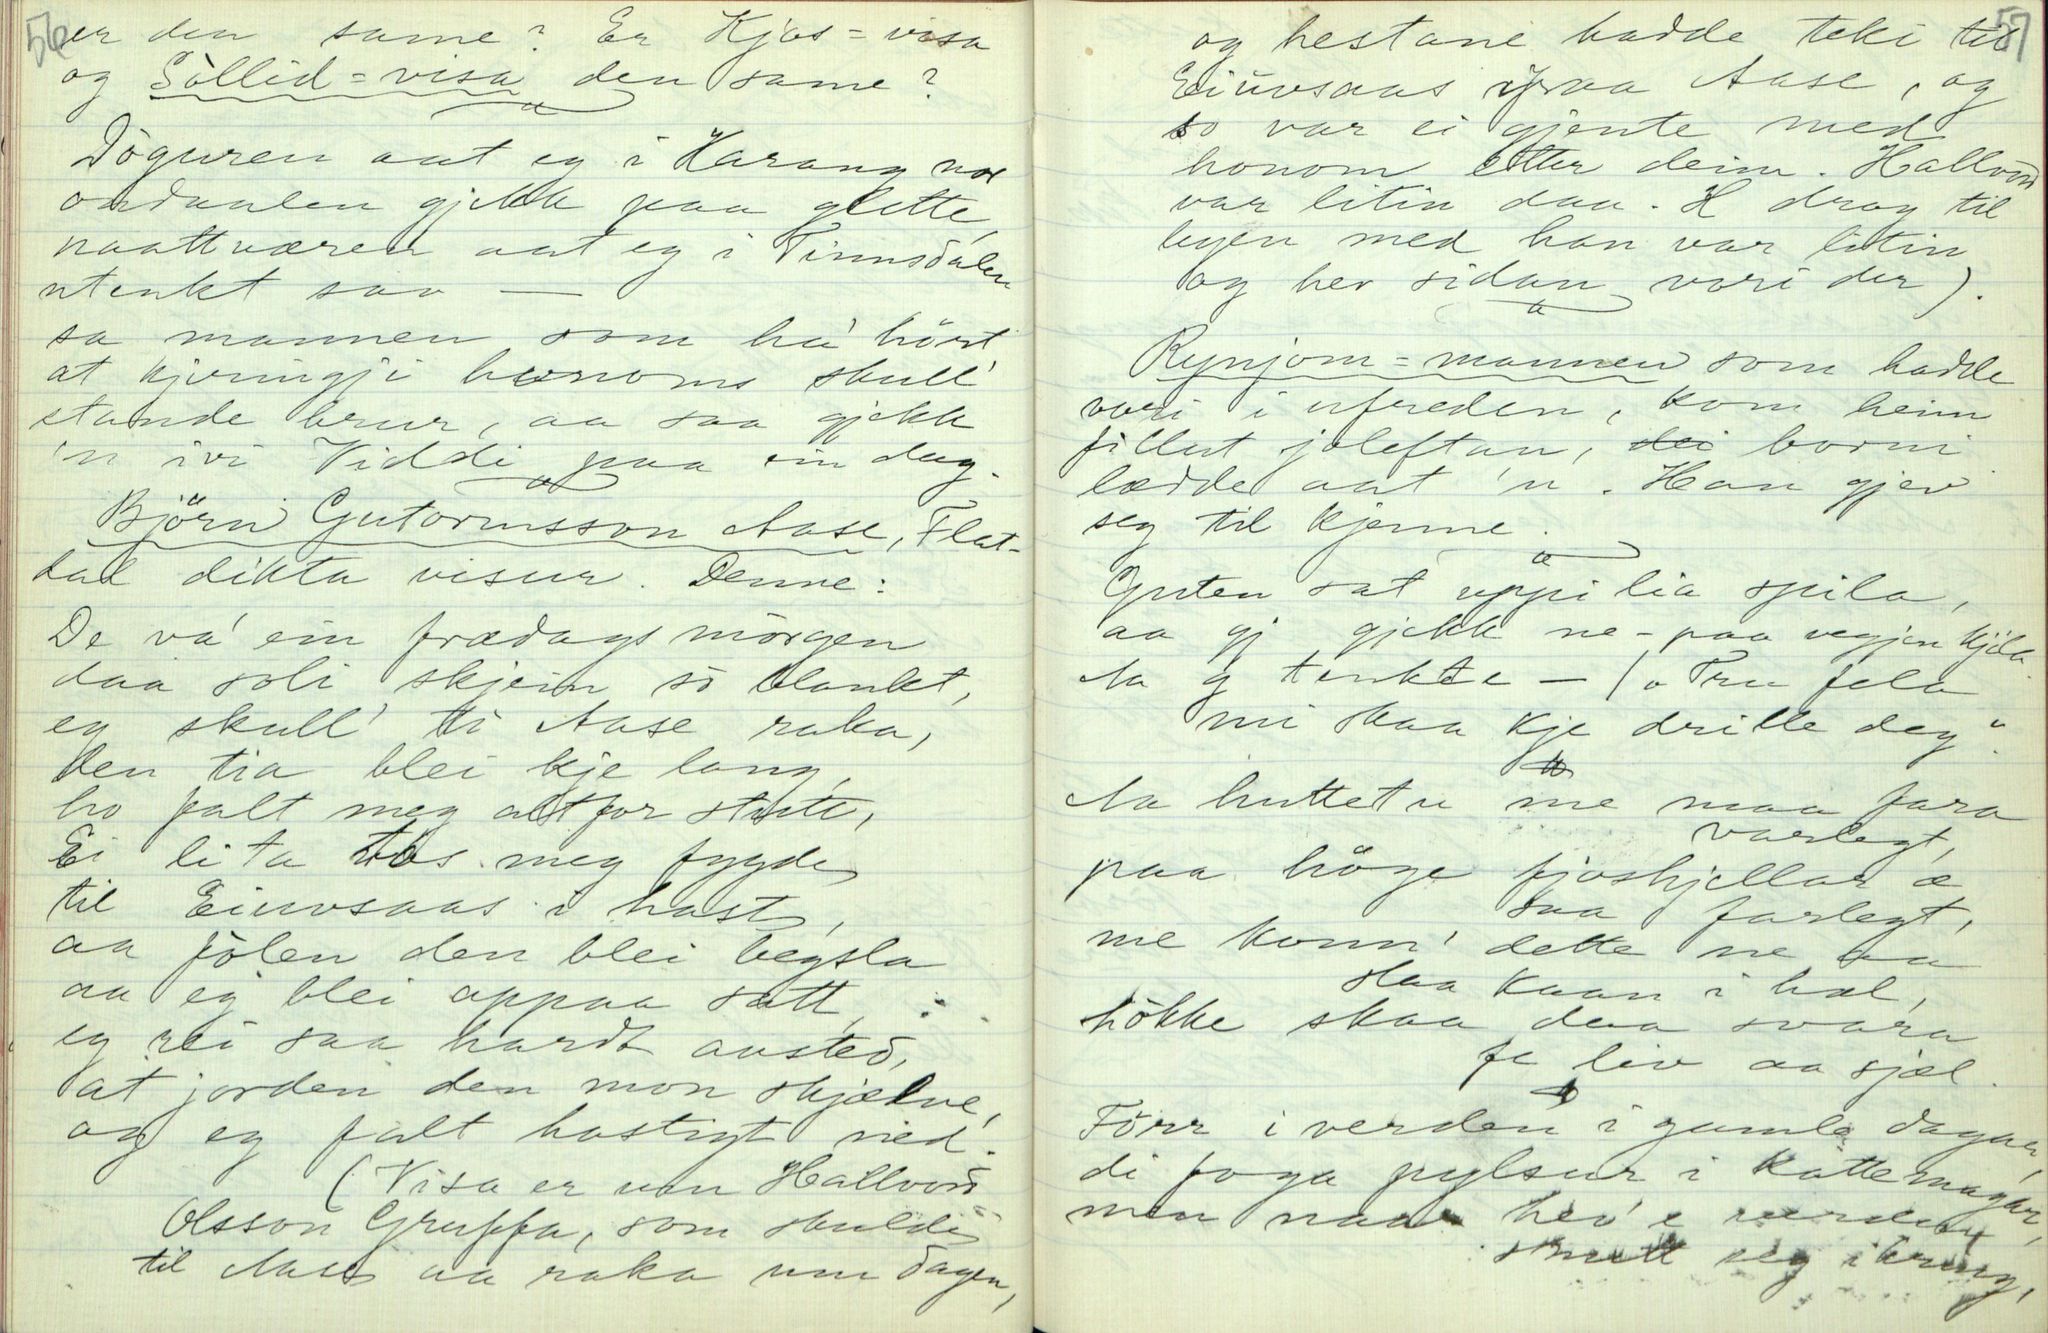 56
er den same? Er Kjos=visa
og Söllid=visa den same?
Döguren aat eg i Harang nor
ondaalen gjekk paa glette,
naattværen aat eg i Tinnsdalen
utenkt saa —
sa mannen som ha' hört
at kjeringji honoms skull'
stande brur, aa saa gjekk
'n ivi Viddi paa ein dag.
Björn Gutormsson Aase, Flat-
dal dikta visur. Denne:
De va' ein frædags mörgen
daa soli skjein so blankt,
eg skull' ti Aase raka,
den tia blei kje lang,
ho falt meg altfor stutt,
Ei lita tös meg fygde
til Eiuvsaas i hast,
aa fölen den blei begsla
aa eg blei oppaa satt,
eg rei saa hardt austed,
at jorden den mon skjælve,
og eg falt hastigt ned.
(Visa er um Hallvord
Olsson Gruffa, som skulde
til Aase aa raka um dagen,
57
og hestane hadde teki til
Eiuvsaas ifraa Aase, og
so var ei gjente med
honom etter deim. Hallvord
var litin daa. H drog til
byen med han var litin
og hev sidan vori der).
Rynjom=mannen som hadde
vori i ufreden, kom heim
fillut joleftan, dei borni
lædde aat 'n. Han gjev
seg til kjenne.
Guten sat uppi lia spila,
aa gj gjekk ne-paa vegjen kjila.
Aa g tenkte — "Tru fela
mi skaa kje drille deg".
Aa huttetu me maa fara
varlegt,
paa höge fjoshjellar æ
saa farlegt,
me kunn' dette ne aa
slaa kaan i hæl,
hökke skaa daa svara
fe liv aa sjæl.
Förr i verden i gamle dagar,
di foga pylsur i kattemagar,
men naa hev' e verden
snutt seg ikring,